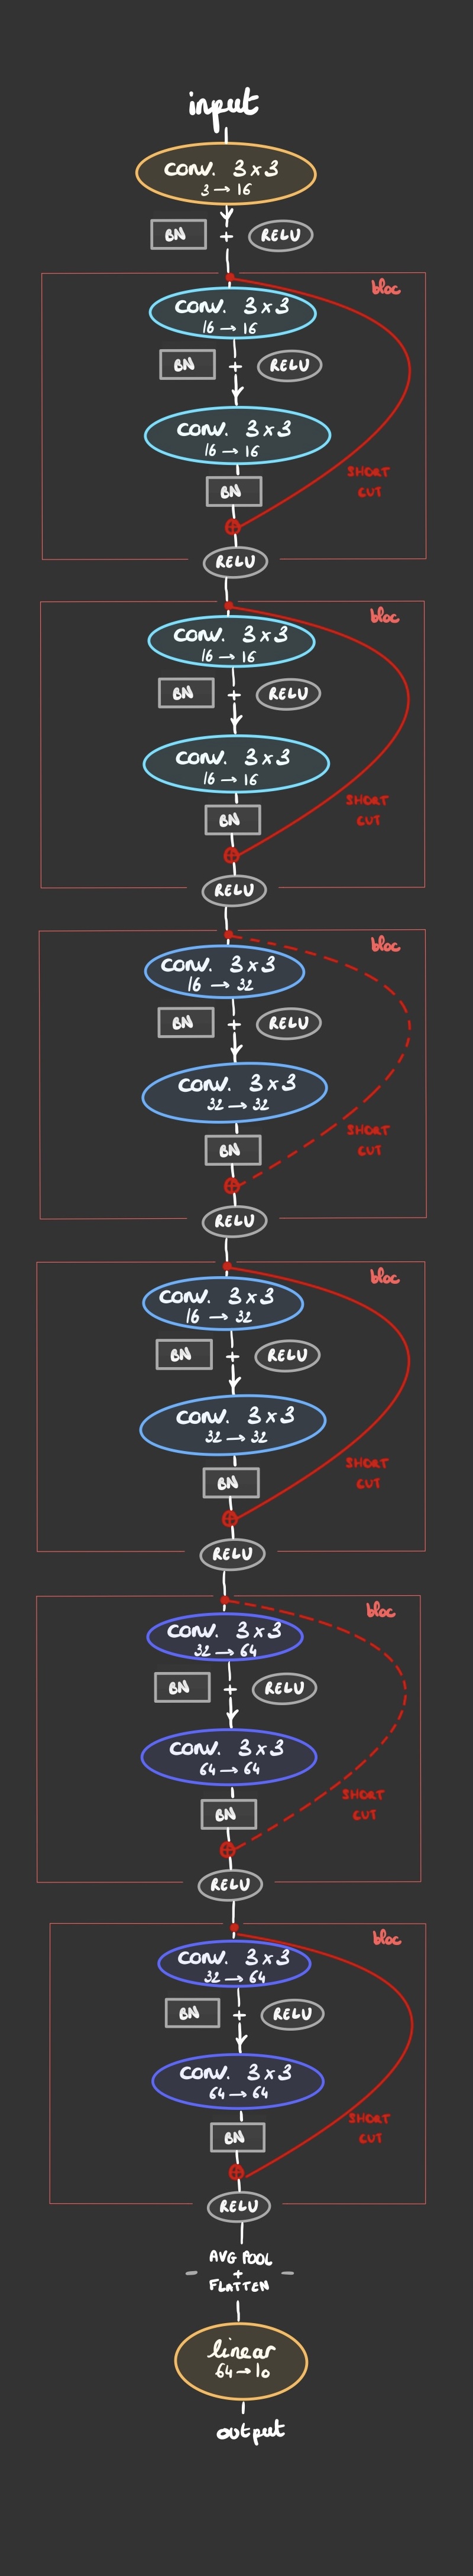 input
CONV. 3x3
3 → 16
BN + RELU
bloc
CONV. 3x3
16 → 16
BN + RELU
CONV. 3x3
16 → 16
SHORT
CUT
BN
RELU
bloc
CONV. 3x3
16 → 16
BN + RELU
CONV. 3x3
16 → 16
SHORT
CUT
BN
RELU
bloc
CONV. 3x3
16 → 32
BN + RELU
CONV. 3x3
32 → 32
SHORT
CUT
BN
RELU
bloc
CONV. 3x3
16 → 32
BN + RELU
CONV. 3x3
32 → 32
SHORT
CUT
BN
RELU
bloc
CONV. 3x3
32 → 64
BN + RELU
CONV. 3x3
64 → 64
SHORT
CUT
BN
RELU
bloc
CONV. 3x3
32 → 64
BN + RELU
CONV. 3x3
64 → 64
SHORT
CUT
BN
RELU
AVG POOL
+
FLATTEN
linear
64 → 10
output